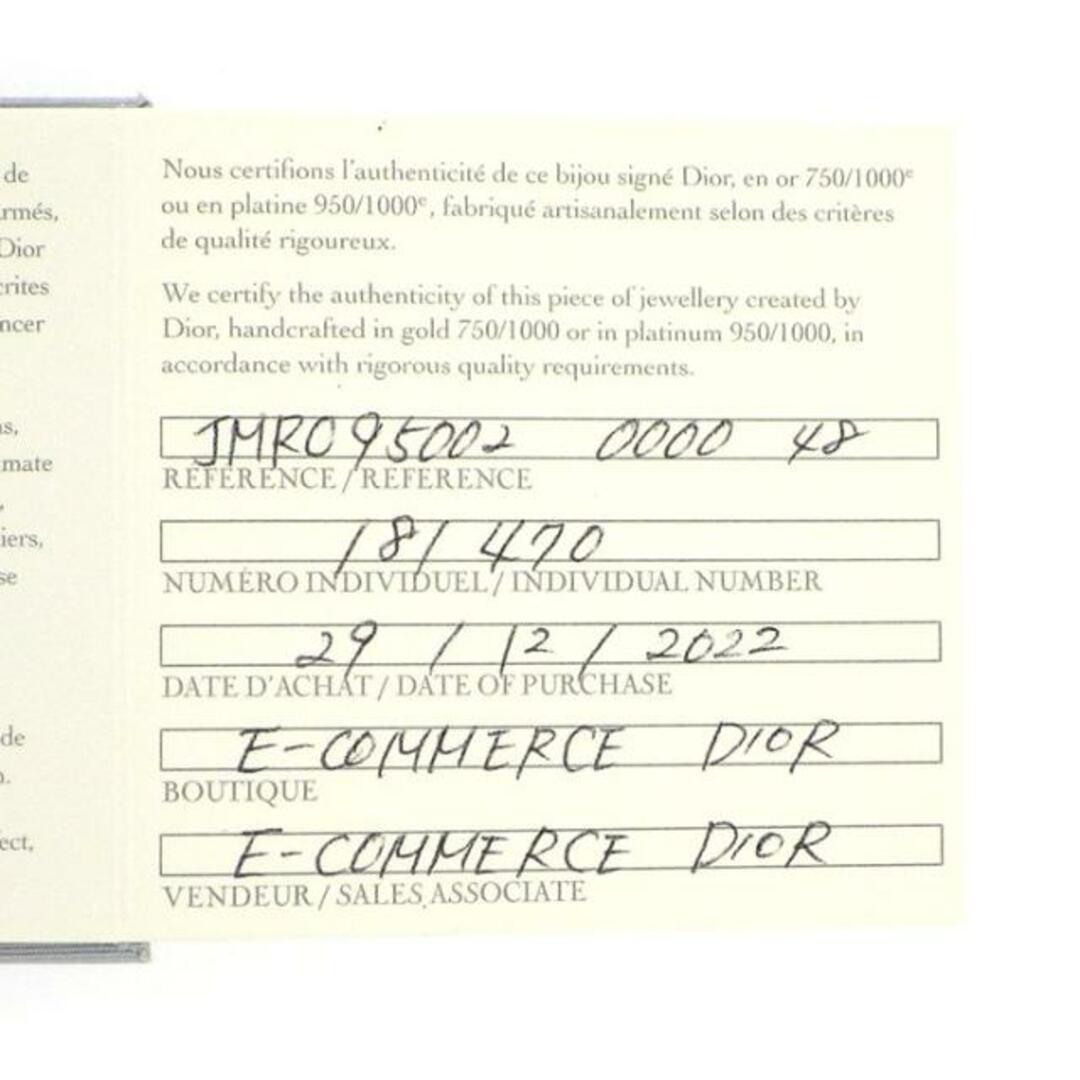 de
rmés,
Dior
crites
ncer
s,
mate
iers,
se
de
ect,
Nous certifions l'authenticité de ce bijou signé Dior, en or 750/1000e
ou en platine 950/1000e, fabriqué artisanalement selon des critères
de qualité rigoureux.
We certify the authenticity of this piece of jewellery created by
Dior, handcrafted in gold 750/1000 or in platinum 950/1000, in
accordance with rigorous quality requirements.
JMRO95002 0000 48
RÉFÉRENCE / REFERENCE
181470
NUMÉRO INDIVIDUEL / INDIVIDUAL NUMBER
29 / 12 / 2022
DATE D'ACHAT / DATE OF PURCHASE
E-COMMERCE DIOR
BOUTIQUE
E-COMMERCE DIOR
VENDEUR / SALES ASSOCIATE